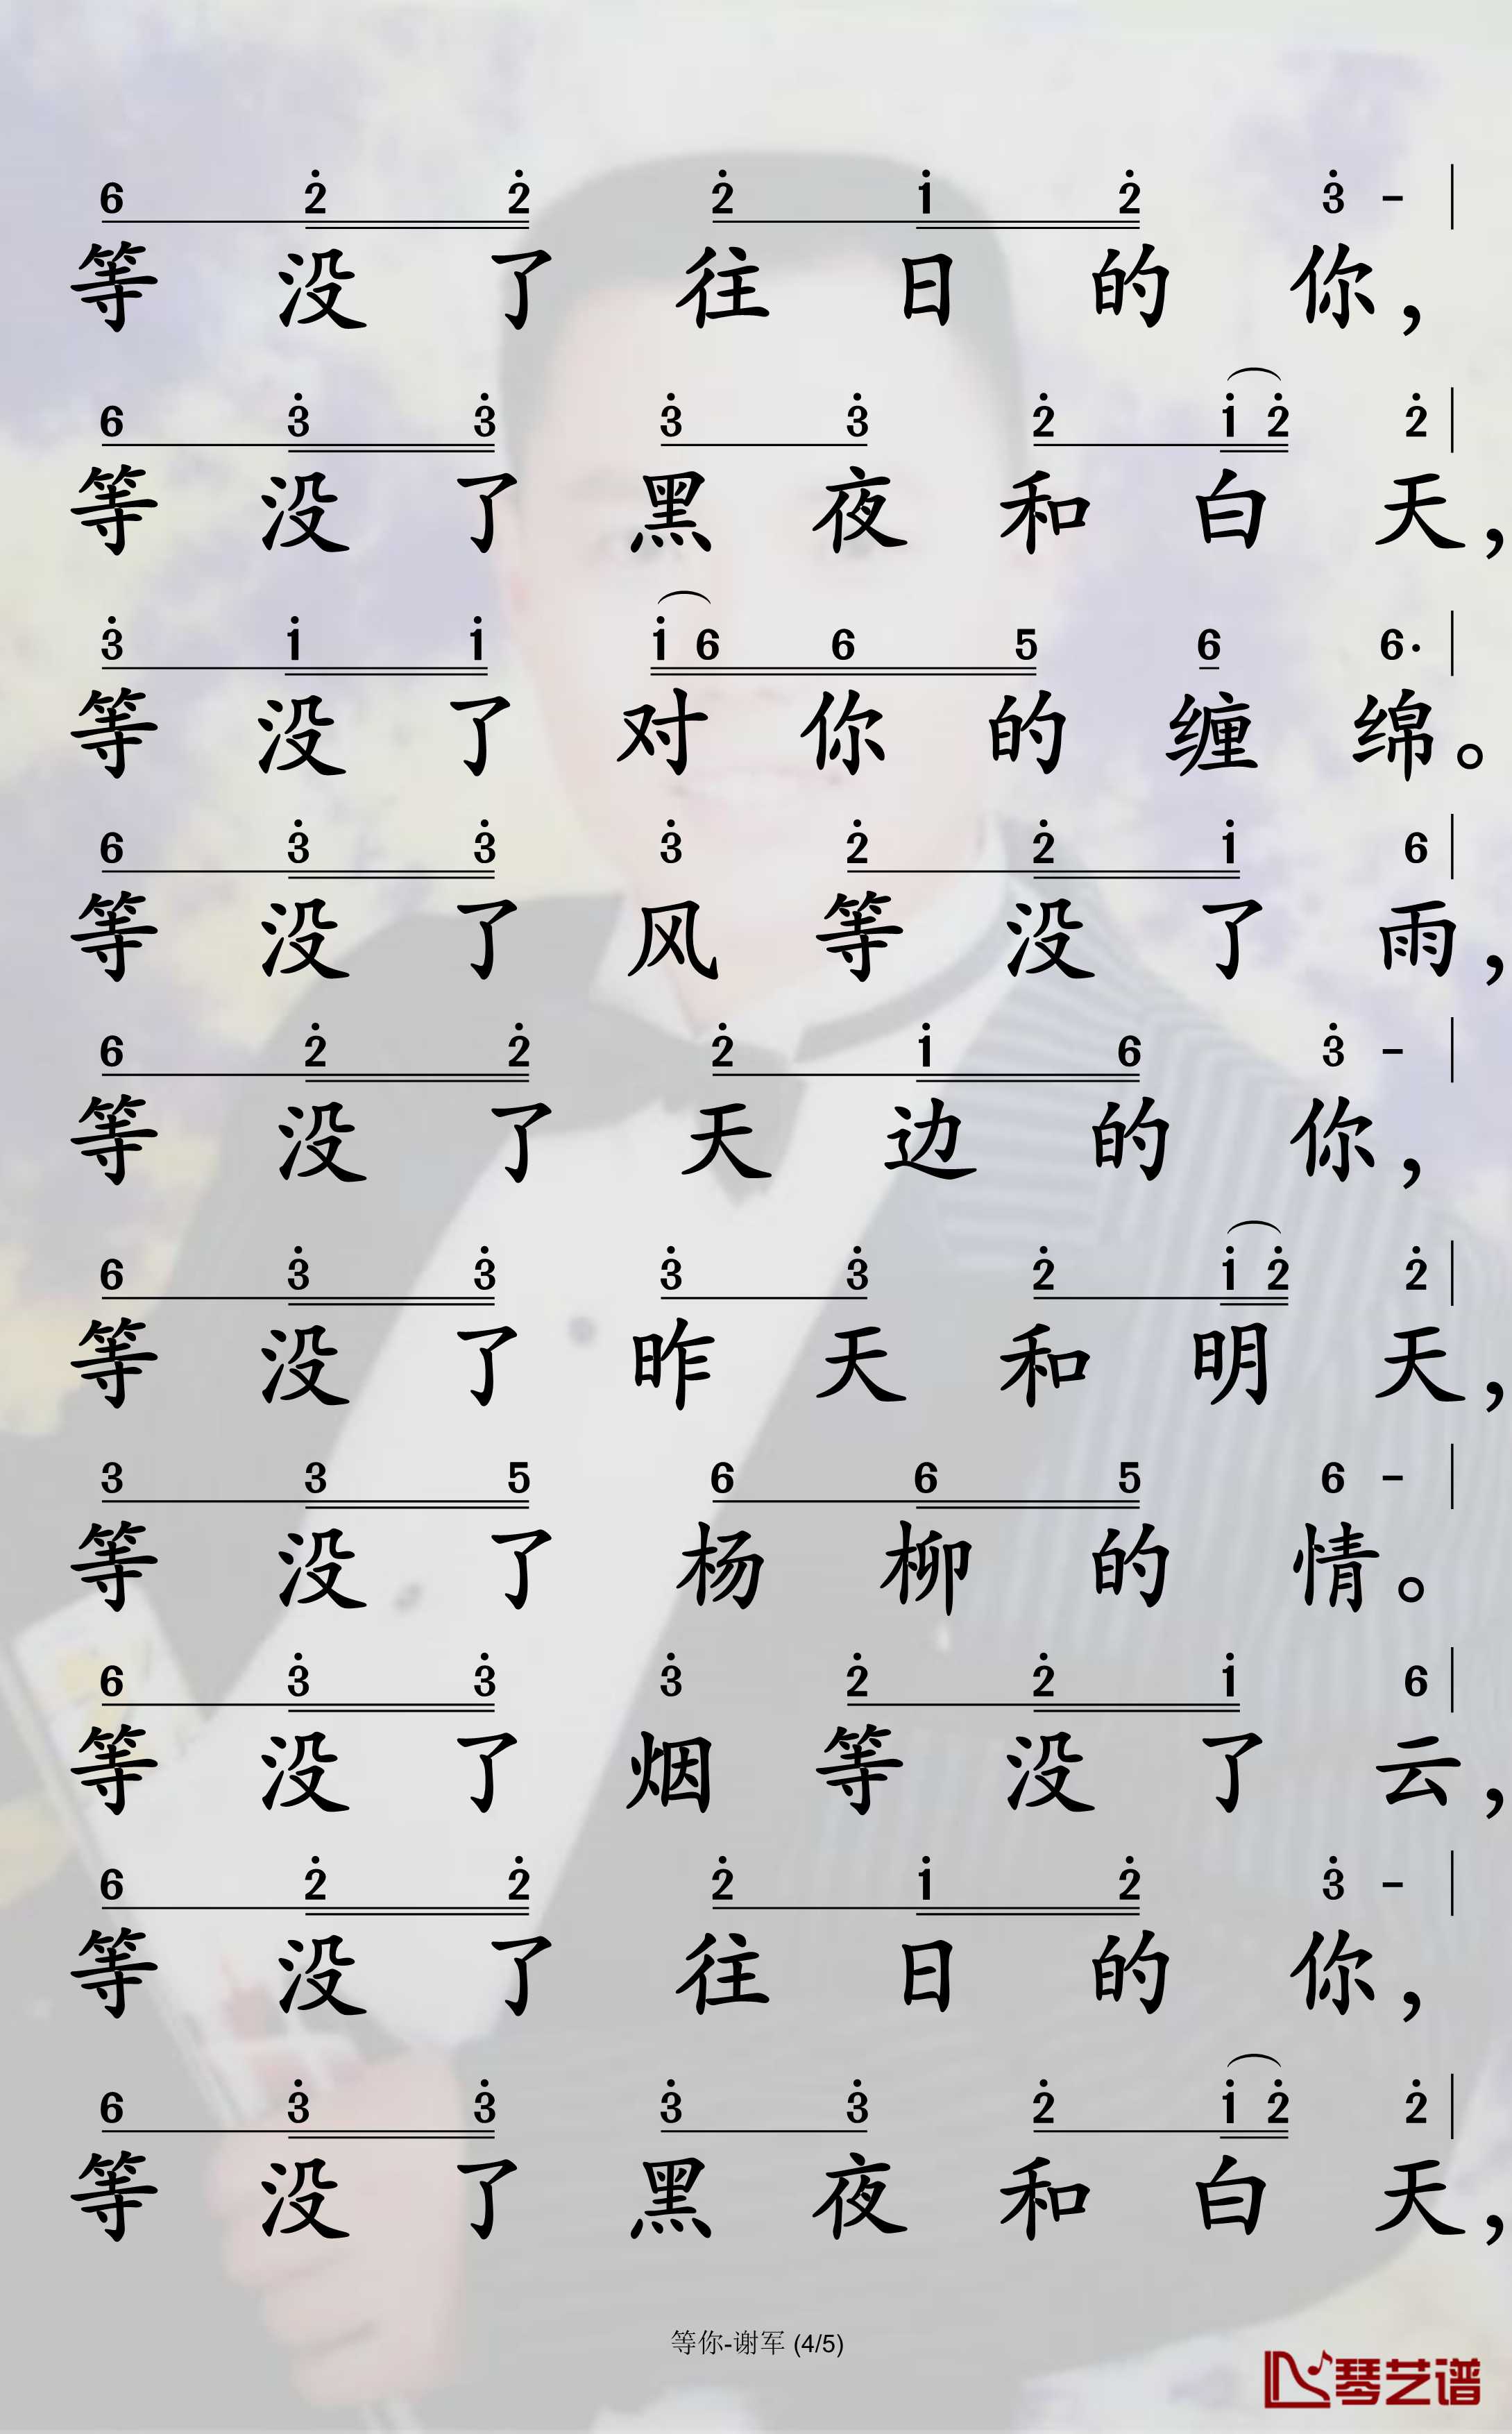 6 2̇ 2̇ 2̇ 1̇ 2̇ 3̇ - |
等没了往日的你，
6 3̇ 3̇ 3̇ 3̇ 2̇ 1̇ 2̇ 2̇ |
等没了黑夜和白天，
3̇ 1̇ 1̇ 1̇ 6 6 5 6 6· |
等没了对你的缠绵。
6 3̇ 3̇ 3̇ 2̇ 2̇ 1̇ 6 |
等没了风等没了雨，
6 2̇ 2̇ 2̇ 1̇ 6 3̇ - |
等没了天边的你，
6 3̇ 3̇ 3̇ 3̇ 2̇ 1̇ 2̇ 2̇ |
等没了昨天和明天，
3 3 5 6 6 5 6 - |
等没了杨柳的情。
6 3̇ 3̇ 3̇ 2̇ 2̇ 1̇ 6 |
等没了烟等没了云，
6 2̇ 2̇ 2̇ 1̇ 2̇ 3̇ - |
等没了往日的你，
6 3̇ 3̇ 3̇ 3̇ 2̇ 1̇ 2̇ 2̇ |
等没了黑夜和白天，
等你-谢军 (4/5)
琴艺谱